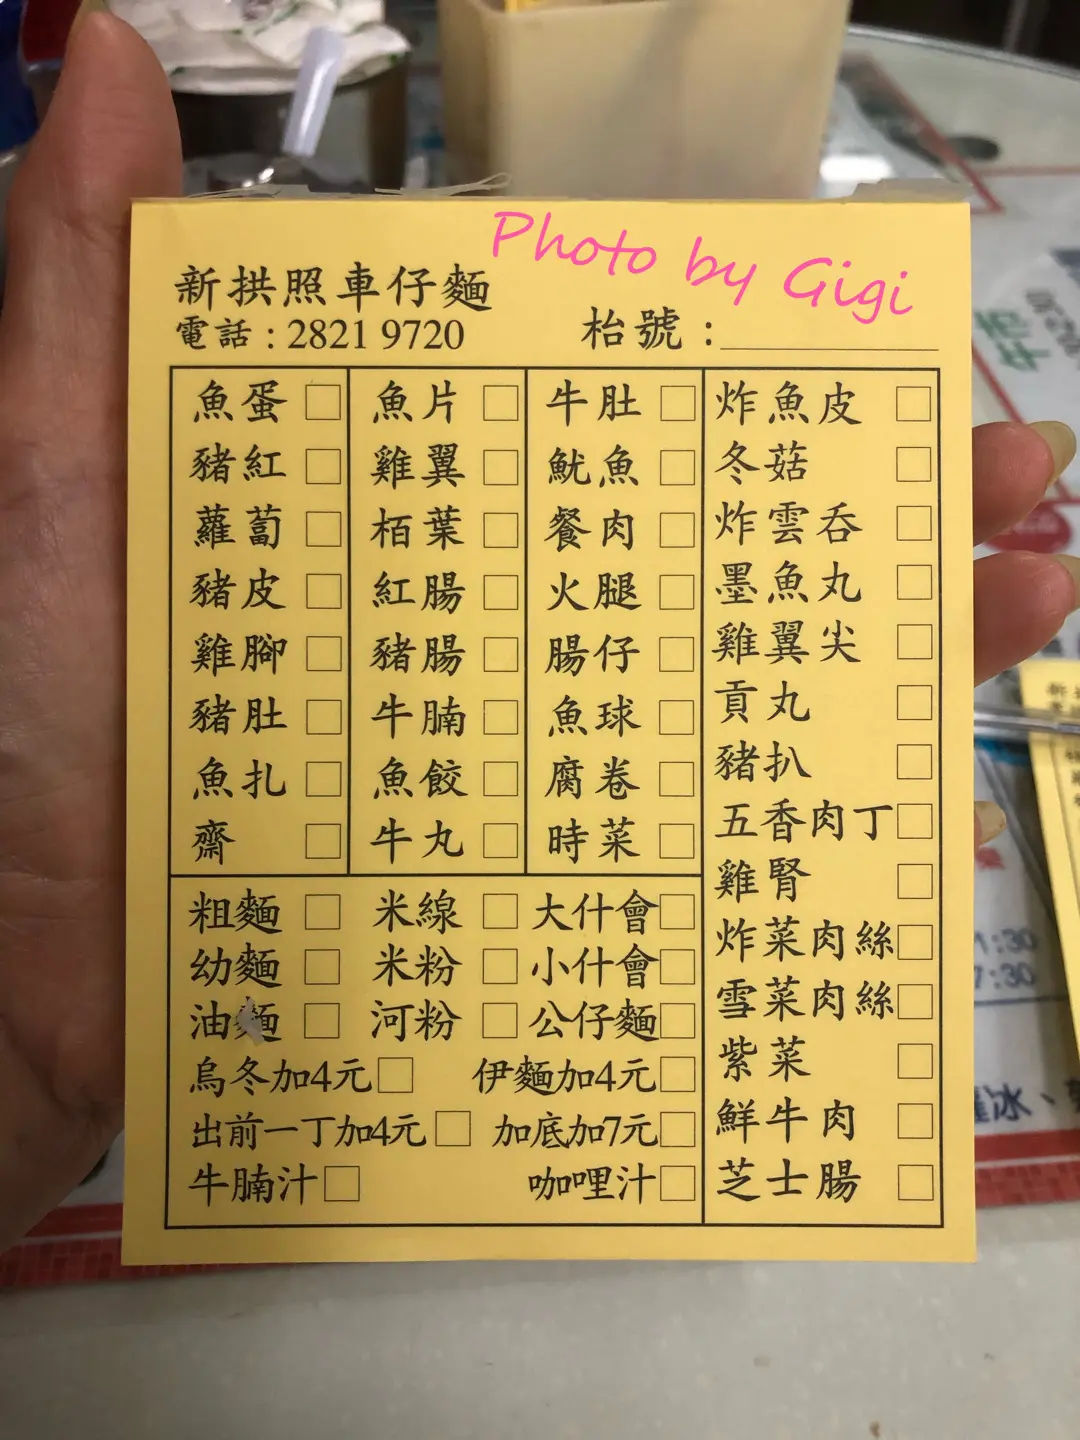 Photo by Gigi
新拱照車仔麵
電話：2821 9720
枱號：
魚蛋 □ 魚片 □ 牛肚 □ 炸魚皮 □
豬紅 □ 雞翼 □ 魷魚 □ 冬菇 □
蘿蔔 □ 栢葉 □ 餐肉 □ 炸雲吞 □
豬皮 □ 紅腸 □ 火腿 □ 墨魚丸 □
雞腳 □ 豬腸 □ 腸仔 □ 雞翼尖 □
豬肚 □ 牛腩 □ 魚球 □ 貢丸 □
魚扎 □ 魚餃 □ 腐卷 □ 豬扒 □
齋 □ 牛丸 □ 時菜 □ 五香肉丁 □
雞腎 □
粗麵 □ 米線 □ 大什會 □ 炸菜肉絲 □
幼麵 □ 米粉 □ 小什會 □ 雪菜肉絲 □
油麵 □ 河粉 □ 公仔麵 □ 紫菜 □
烏冬加4元 □ 伊麵加4元 □ 鮮牛肉 □
出前一丁加4元 □ 加底加7元 □ 芝士腸 □
牛腩汁 □ 咖哩汁 □
1:30
7:30